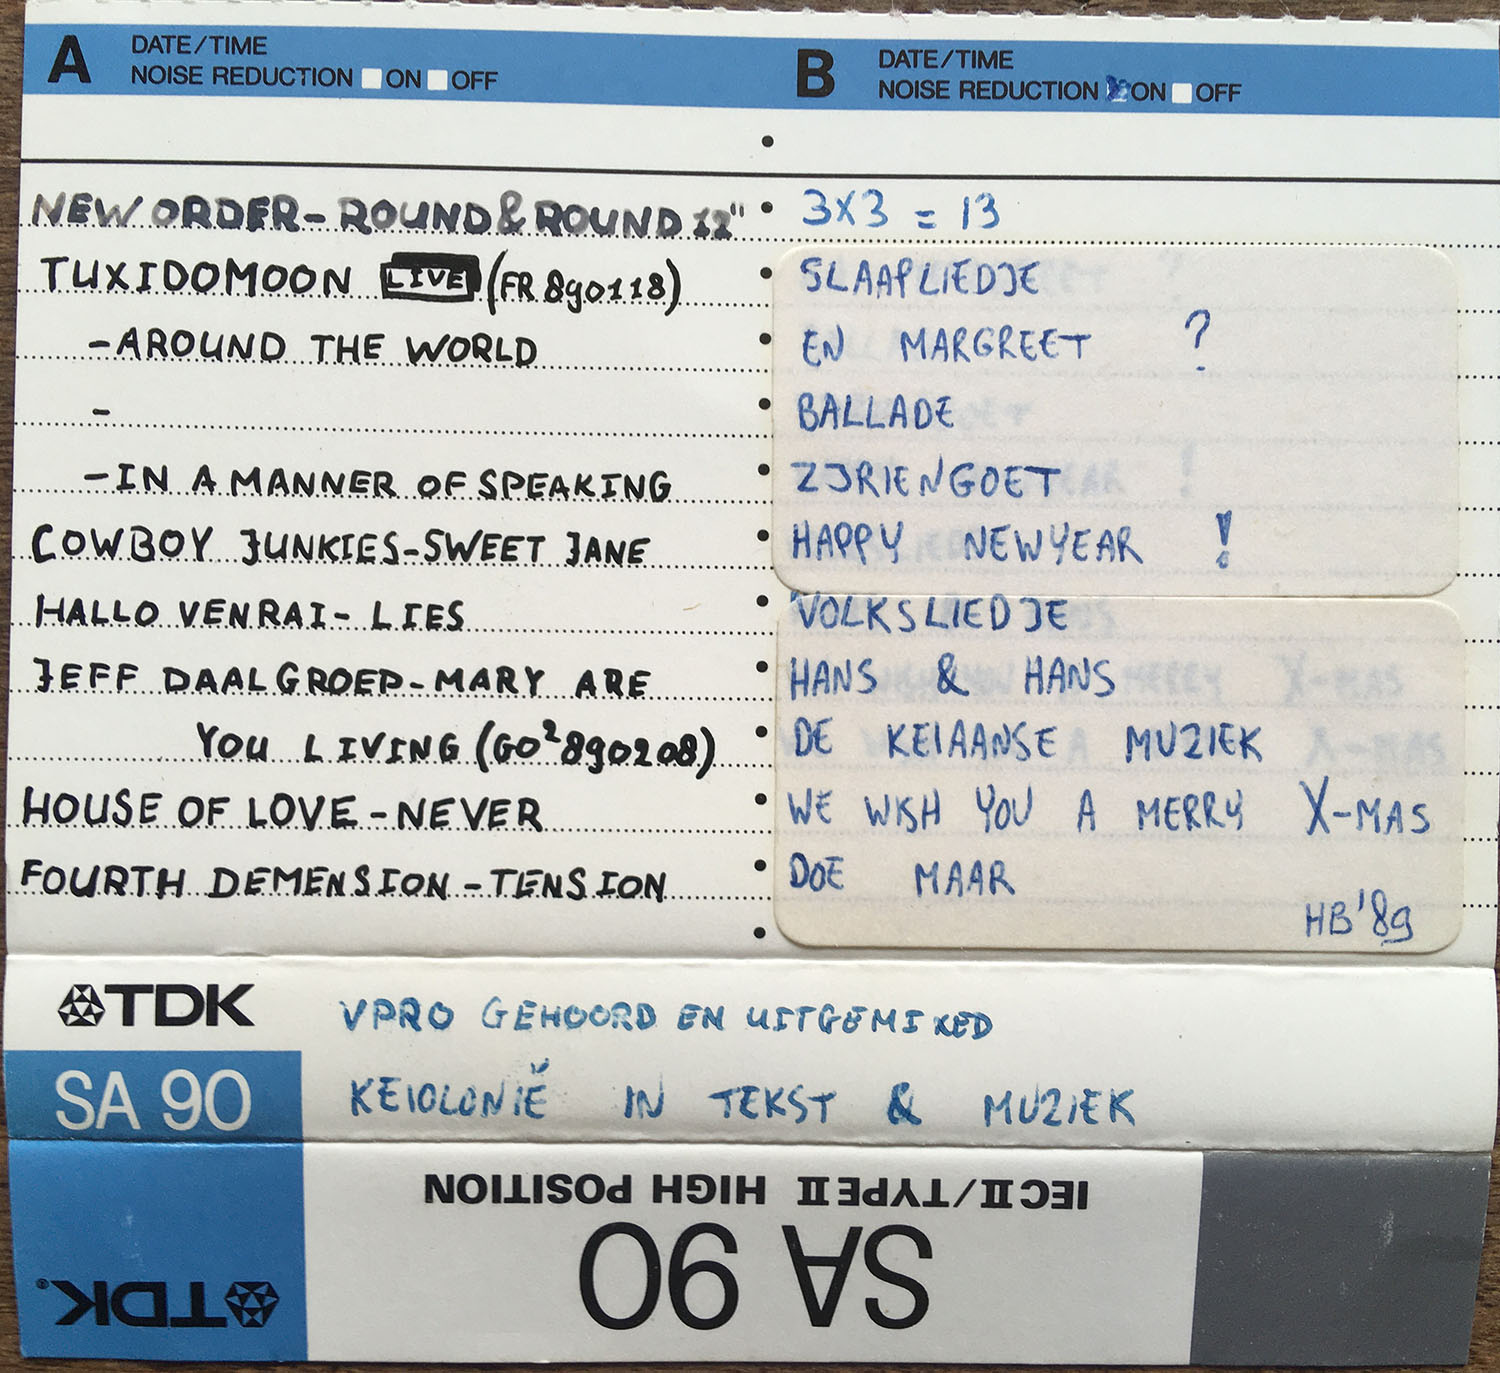 A DATE/TIME
NOISE REDUCTION ON OFF
NEW ORDER - ROUND & ROUND 12"
TUXIDOMOON LIVE (FR 890118)
- AROUND THE WORLD
-
- IN A MANNER OF SPEAKING
COWBOY JUNKIES - SWEET JANE
HALLO VENRAI - LIES
JEFF DAAL GROEP - MARY ARE
YOU LIVING (GO² 890208)
HOUSE OF LOVE - NEVER
FOURTH DEMENSION - TENSION
B DATE/TIME
NOISE REDUCTION ON OFF
3X3 = 13
SLAAPLIEDJE
EN MARGREET ?
BALLADE
ZJRIENGOET
HAPPY NEWYEAR !
VOLKSLIEDJE
HANS & HANS
DE KEIAANSE MUZIEK
WE WISH YOU A MERRY X-MAS
DOE MAAR
HB '89
TDK
SA 90
VPRO GEHOORD EN UITGEMIXED
KEIOLONIË IN TEKST & MUZIEK
IEC II/TYPE II HIGH POSITION
SA 90
TDK®